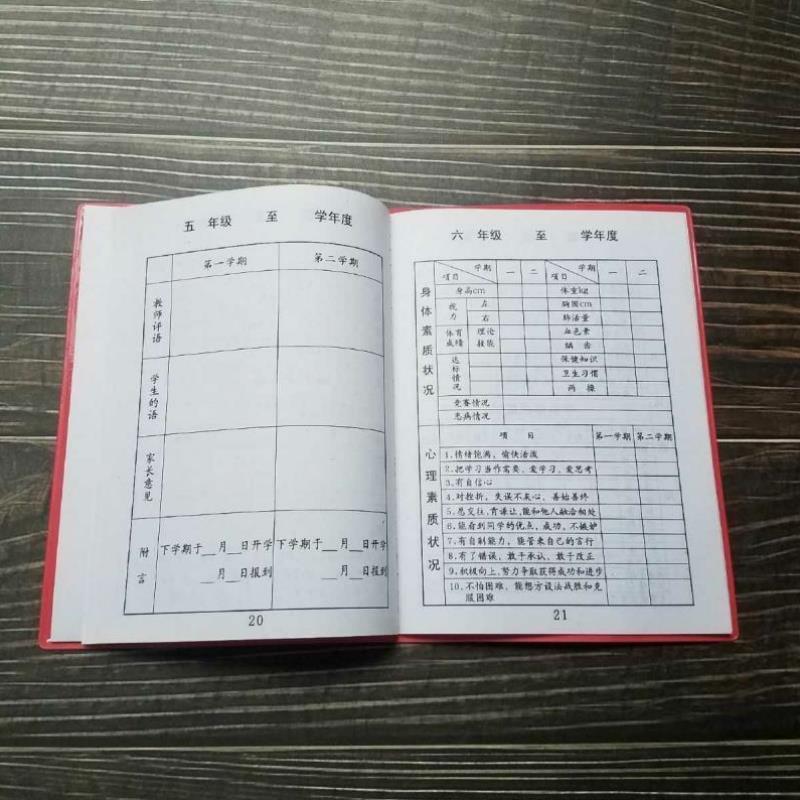 五 年级 至 学年度
第一学期 第二学期
教师评语
学生的语
家长意见
附言
下学期于__月__日开学 下学期于__月__日开学
__月__日报到 __月__日报到
20
六 年级 至 学年度
身体素质状况
项目 学期 一 二 项目 学期 一 二
身高cm 体重kg
视力 左 胸围cm
右 肺活量
体育成绩 理论 血色素
技能 龋齿
达标情况 保健知识
卫生习惯
两操
竞赛情况
患病情况
心理素质状况
项 目 第一学期 第二学期
1.情绪饱满,愉快活泼
2.把学习当作需要、爱学习、爱思考
3.有自信心
4.对挫折,失误不灰心、善始善终
5.愿交往,肯谦让,能和他人融洽相处
6.能看到同学的优点,成功,不嫉妒
7.有自制能力,能管束自己的言行
8.有了错误,敢于承认、敢于改正
9.积极向上,努力争取获得成功和进步
10.不怕困难,能想方设法战胜和克
服困难
21